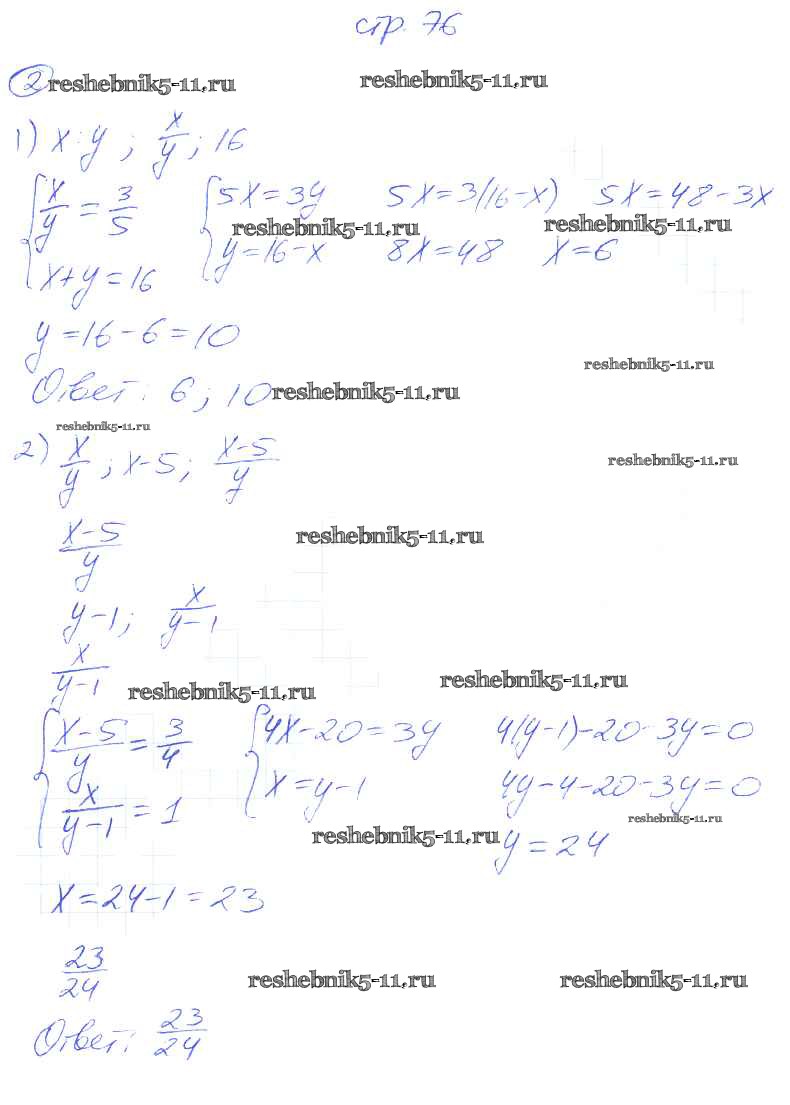 стр. 76
2 reshebnik5-11.ru reshebnik5-11.ru
1) x : y ; x/y ; 16
{ x/y = 3/5 { 5x = 3y 5x = 3(16-x) 5x = 48 - 3x
reshebnik5-11.ru reshebnik5-11.ru
x + y = 16 y = 16 - x 8x = 48 x = 6
y = 16 - 6 = 10
reshebnik5-11.ru
Ответ: 6 ; 10 reshebnik5-11.ru
reshebnik5-11.ru
2) x/y ; x-5 ; (x-5)/y
reshebnik5-11.ru
(x-5)/y reshebnik5-11.ru
y-1 ; x/(y-1)
x/(y-1) reshebnik5-11.ru reshebnik5-11.ru
{ (x-5)/y = 3/4 { 4x - 20 = 3y 4(y-1) - 20 - 3y = 0
x/(y-1) = 1 x = y - 1 4y - 4 - 20 - 3y = 0
reshebnik5-11.ru
reshebnik5-11.ru y = 24
x = 24 - 1 = 23
23/24 reshebnik5-11.ru reshebnik5-11.ru
Ответ: 23/24